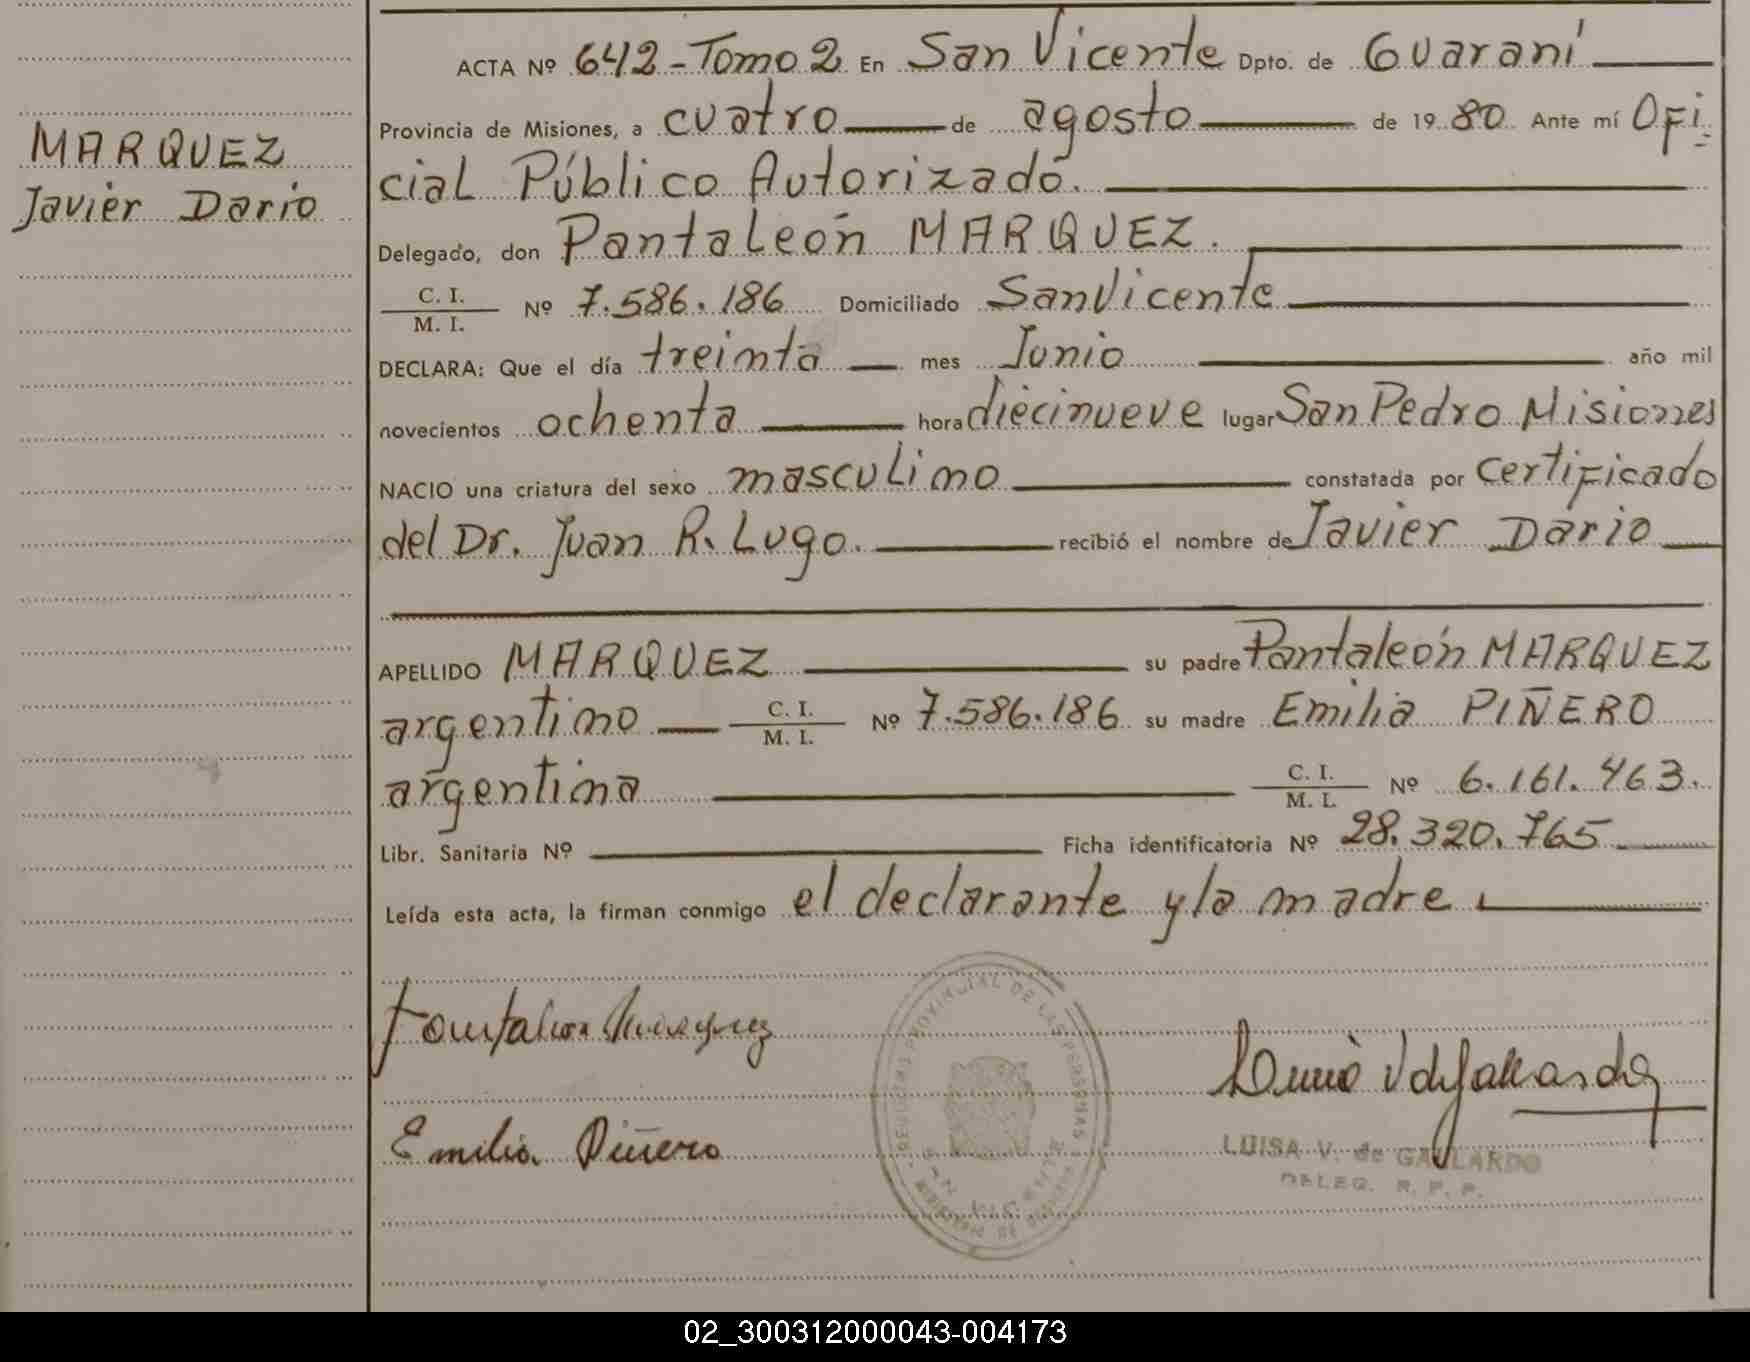 MARQUEZ
Javier Dario
ACTA Nº 642-Tomo 2 En San Vicente Dpto. de Guaraní
Provincia de Misiones, a cuatro de agosto de 1980 Ante mí Ofi=
cial Público Autorizado.
Delegado, don Pantaleón MARQUEZ.
C. I.
M. I. Nº 7.586.186 Domiciliado San Vicente
DECLARA: Que el día treinta mes Junio año mil
novecientos ochenta hora diecinueve lugar San Pedro Misiones
NACIO una criatura del sexo masculino constatada por Certificado
del Dr. Juan R. Lugo. recibió el nombre de Javier Dario
APELLIDO MARQUEZ su padre Pantaleón MARQUEZ
argentino C. I. M. I. Nº 7.586.186 su madre Emilia PIÑERO
argentina C. I. M. I. Nº 6.161.463.
Libr. Sanitaria Nº Ficha identificatoria Nº 28.320.765
Leída esta acta, la firman conmigo el declarante y la madre
Pantaleon Marquez
Emilia Piñero
PROVINCIAL DE LAS PERSONAS
SAN VICENTE
LUISA V. de GALLARDO
DELEG. R. P. P.
02_300312000043-004173